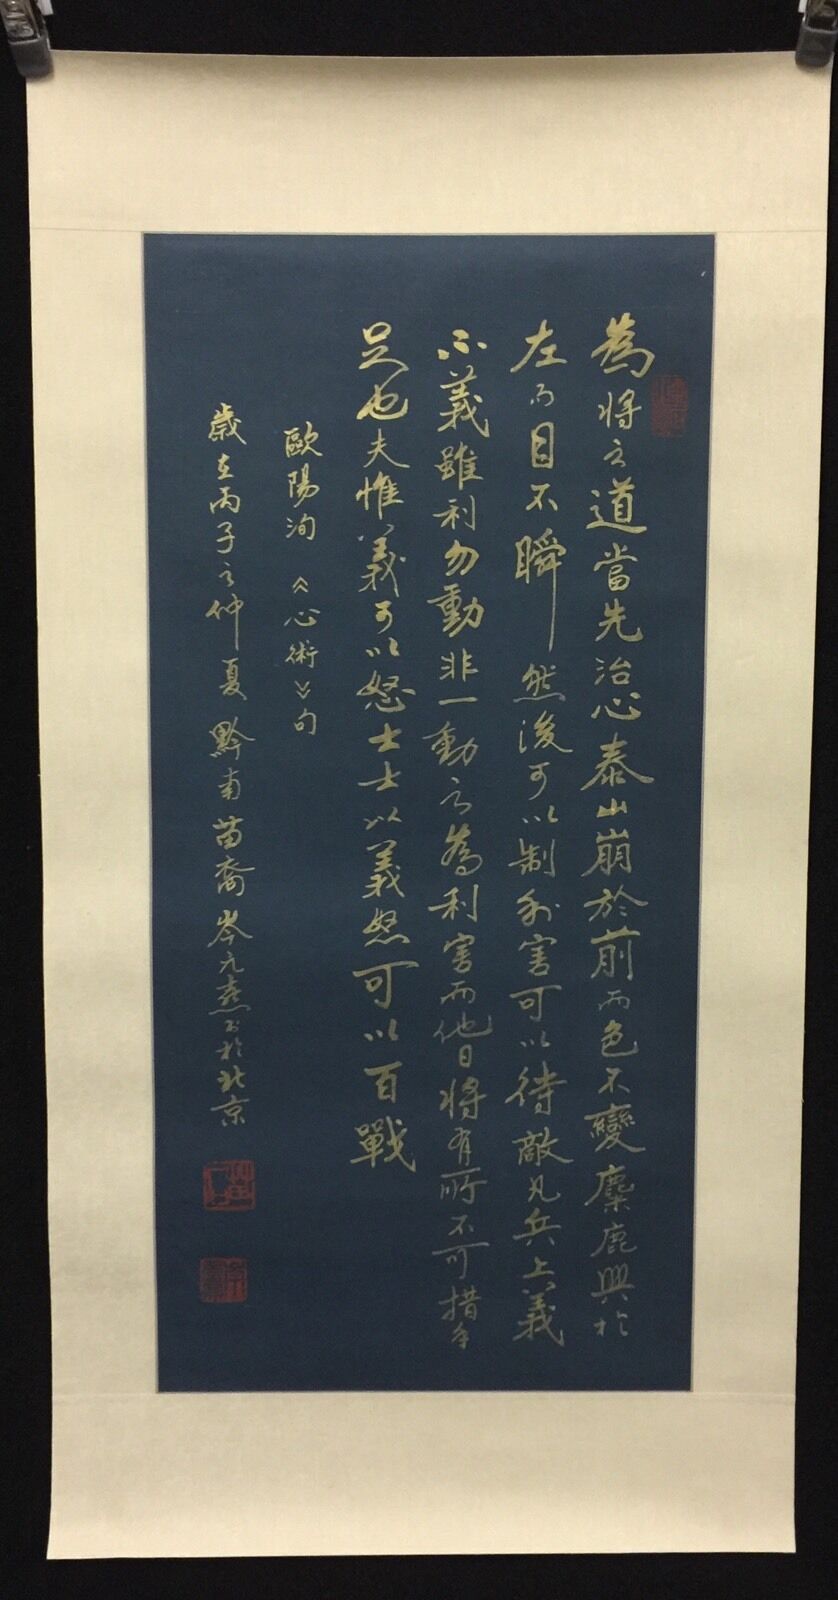 為將之道當先治心泰山崩於前而色不變麋鹿興於
左而目不瞬然後可以制利害可以待敵凡兵上義
不義雖利勿動非一動之為利害而他日將有所不可措手
足也夫惟義可以怒士士以義怒可以百戰
歐陽洵《心術》句
歲在丙子之仲夏黔南苗裔岑元燾書於北京